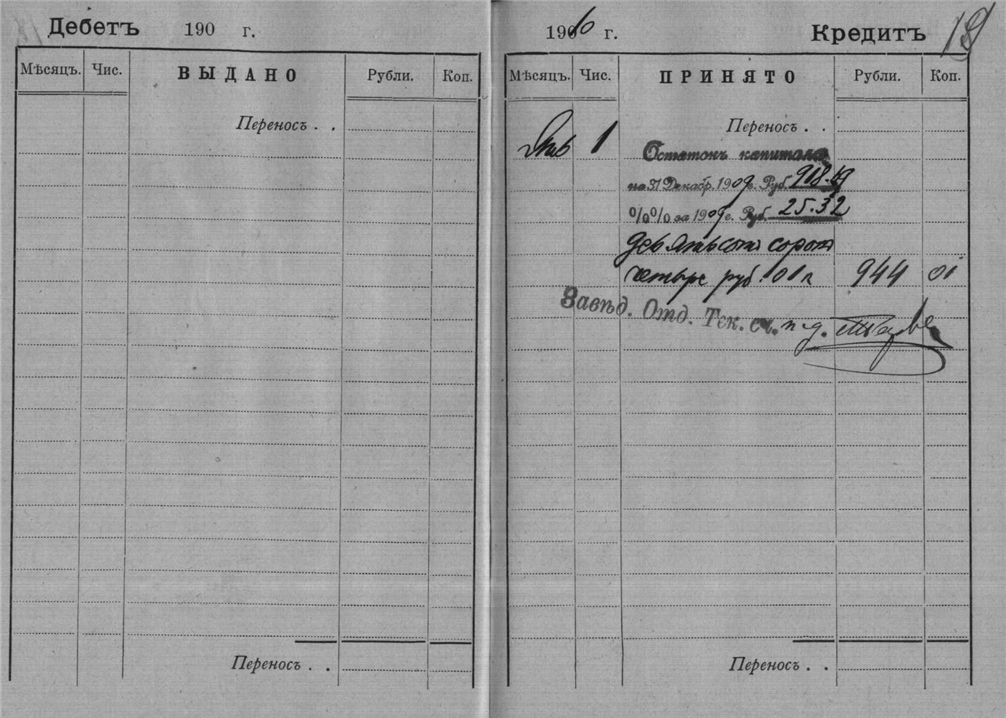 Дебетъ 190 г.
Мѣсяцъ. Чис. ВЫДАНО Рубли. Коп.
Переносъ . .
Переносъ . .
1910 г. Кредитъ 19
Мѣсяцъ. Чис. ПРИНЯТО Рубли. Коп.
Переносъ . .
Янв 1 Остатокъ капитала
на 31 Декабр. 1909 г. Руб. 918.69
%% за 1909 г. Руб. 25.32
девятьсотъ сорокъ
четыре руб. 01 к 944 01
Завѣд. Отд. Тек. сч.
Переносъ . .